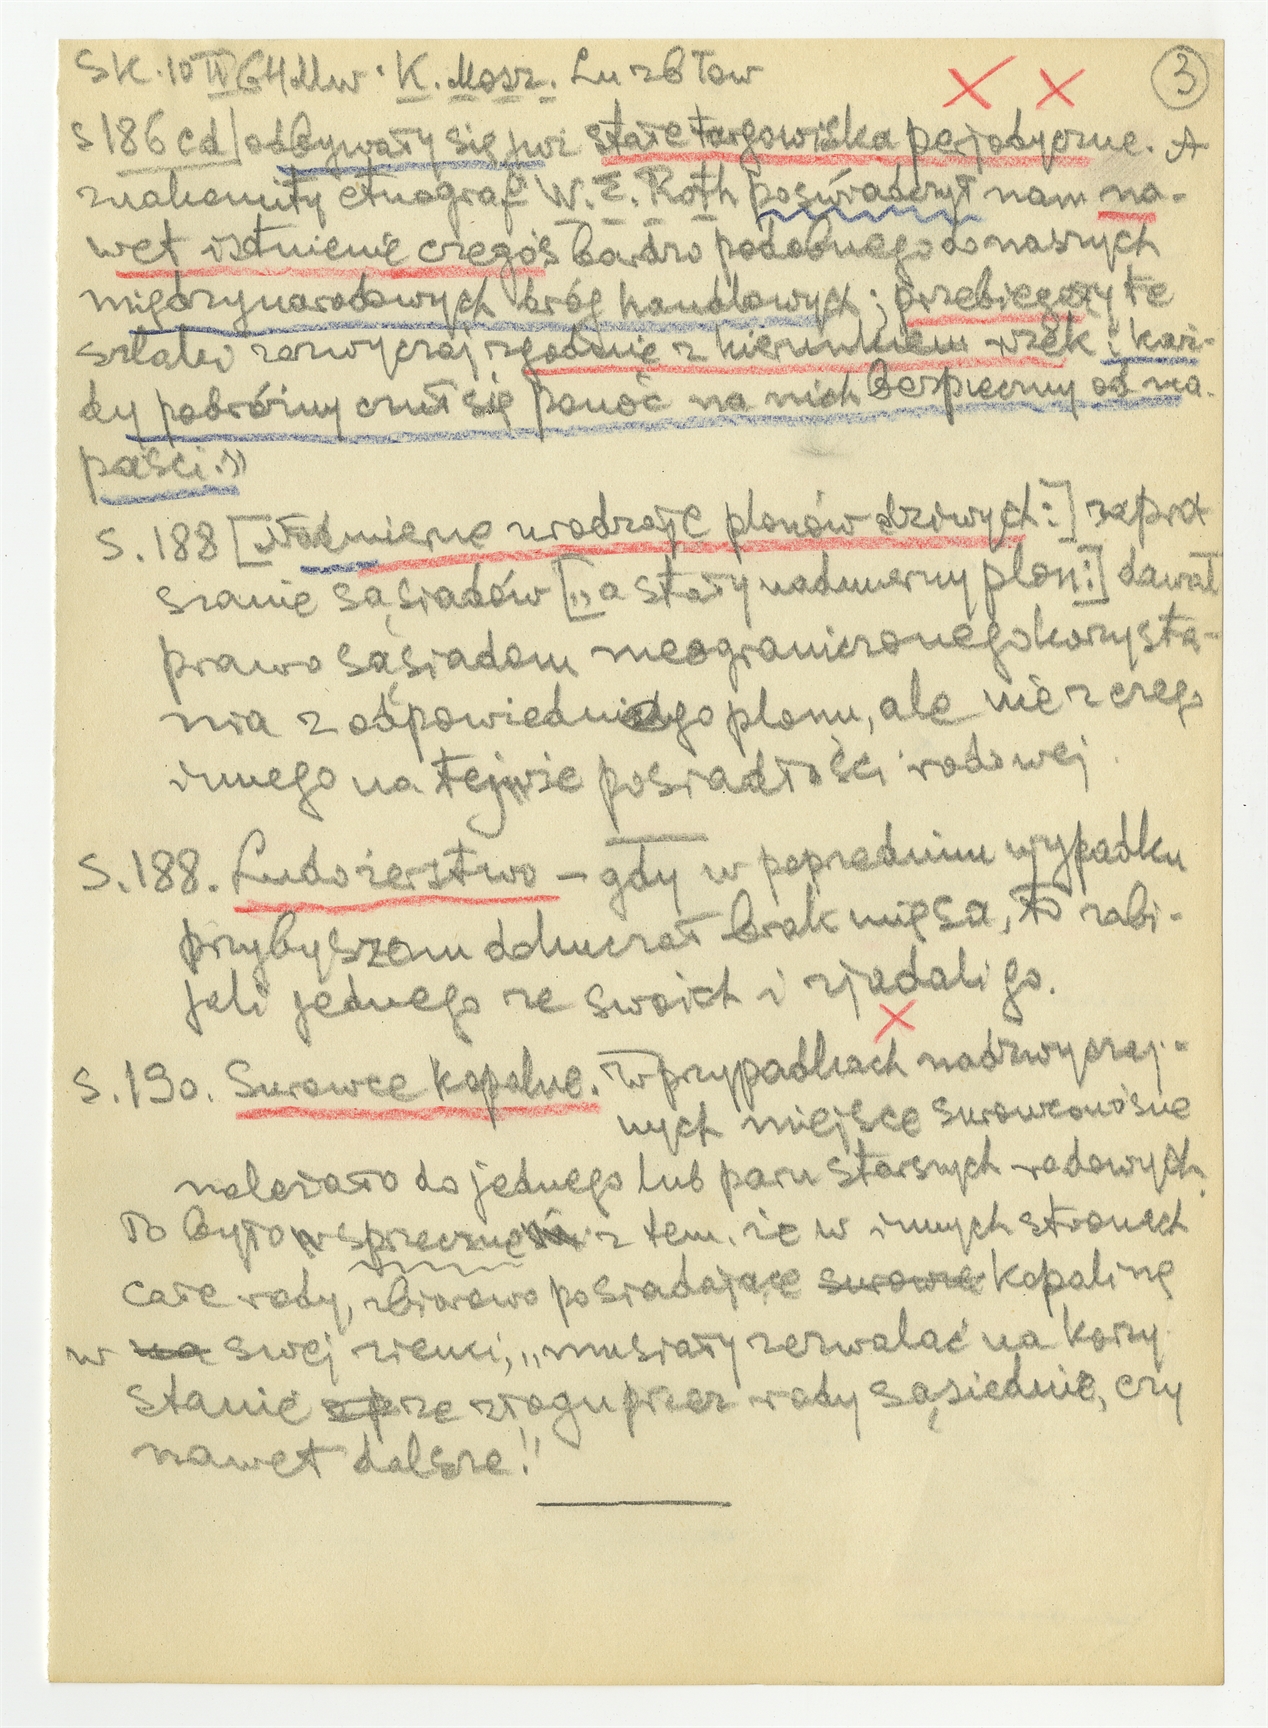 SK. 10 IV 64 Mw. K. Mosz. Lu zb Tow
③
S 186 cd | odbywały się już stałe targowiska perjodyczne. A
znakomity etnograf W. E. Roth poświadczył nam na-
wet istnienie czegoś bardzo podobnego do naszych
międzynarodowych dróg handlowych; przebiegały te
szlaki zazwyczaj zgodnie z kierunkiem rzek i każ-
dy podróżny czuł się ponoć na nich bezpieczny od na-
paści.»
S. 188 [„Nadmierne urodzaje plonów dziwych:] zapra
szanie sąsiadów [„a stały nadmierny plon:] dawał
prawo sąsiadom nieograniczonego korzysta-
nia z odpowiedniego plonu, ale nie z czego
innego na tejże posiadłości rodowej.
S. 188. Ludożerstwo – gdy w poprzednim wypadku
przybyszom dokuczał brak mięsa, to zabi-
jali jednego ze swoich i zjadali go.
S. 190. Surowce kopalne. W przypadkach nadzwyczaj-
nych miejsce surowconośne
należało do jednego lub paru starszych rodowych.
To było w sprzeczności z tem, że w innych stronach
całe rody, zbiorowo posiadające surowce kopalinę
w na swej ziemi, „musiały zezwalać na korzy
stanie ze złogu przez rody sąsiednie, czy
nawet dalsze."